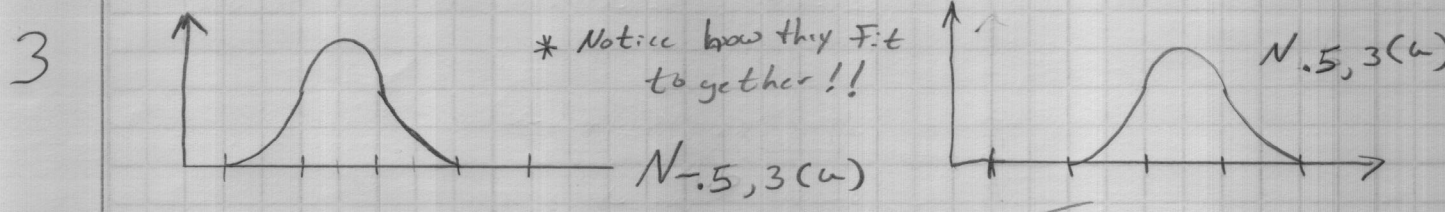 3
* Notice how they Fit
together!!
N-.5,3(u)
N.5,3(u)